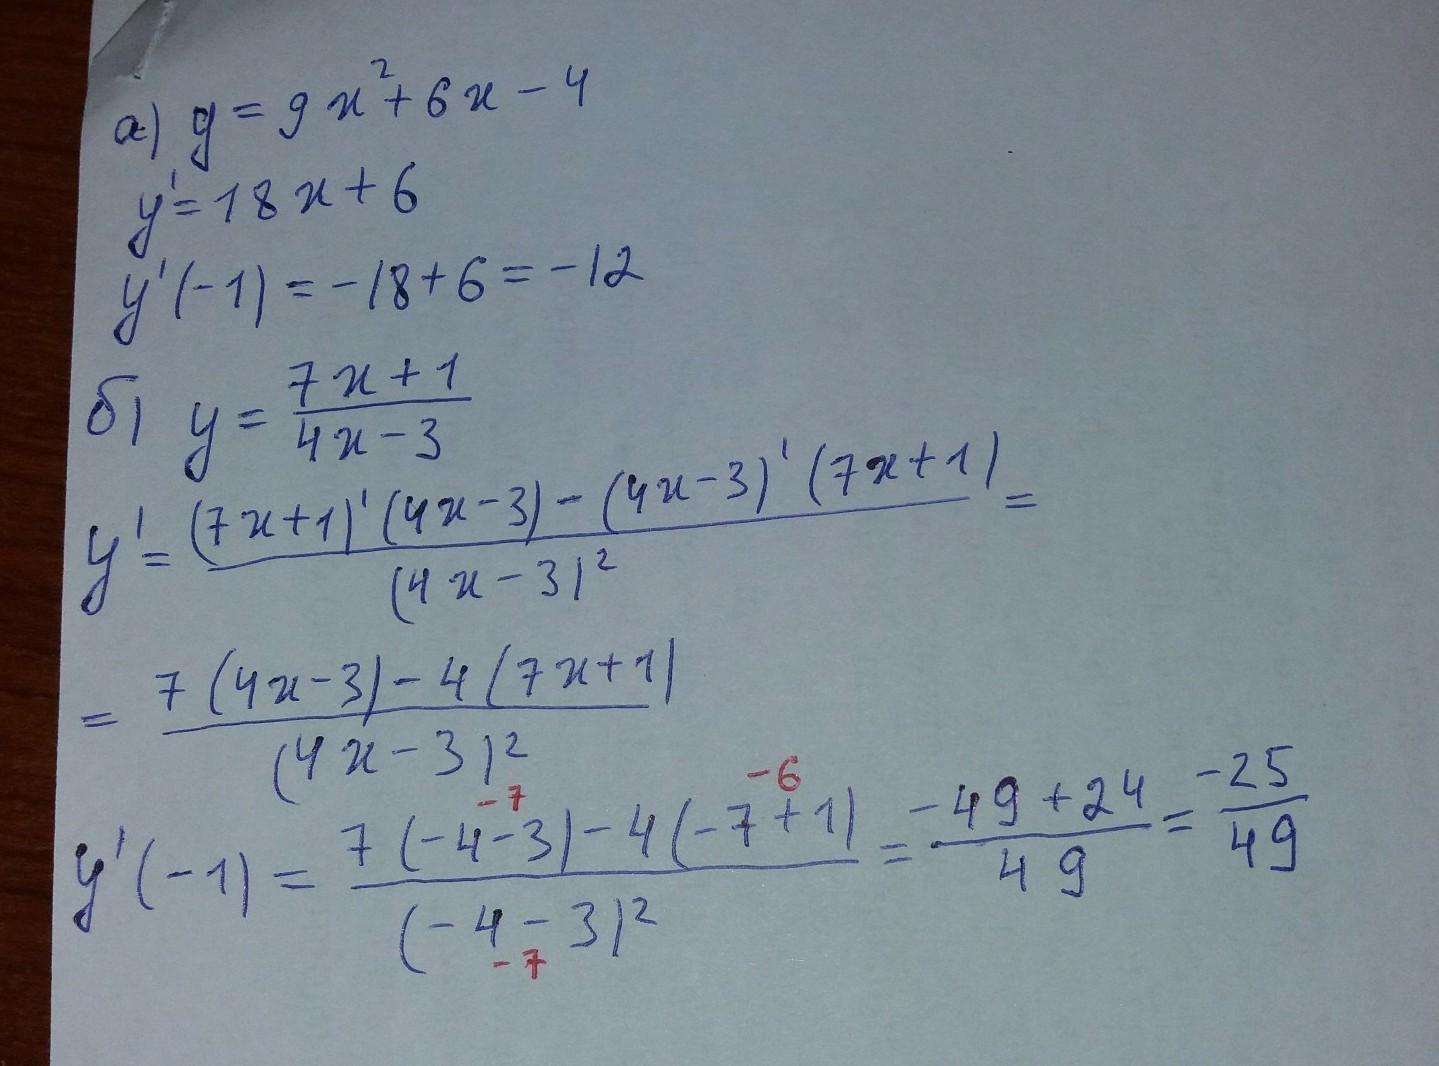 а) y = 9x² + 6x - 4
y' = 18x + 6
y'(-1) = -18 + 6 = -12
б) y = 7x + 1
4x - 3
y' = (7x+1)'(4x-3) - (4x-3)'(7x+1) =
(4x-3)²
= 7(4x-3) - 4(7x+1)
(4x-3)²
-7 -6
y'(-1) = 7(-4-3) - 4(-7+1) = -49+24 = -25
(-4-3)² 49 49
-7